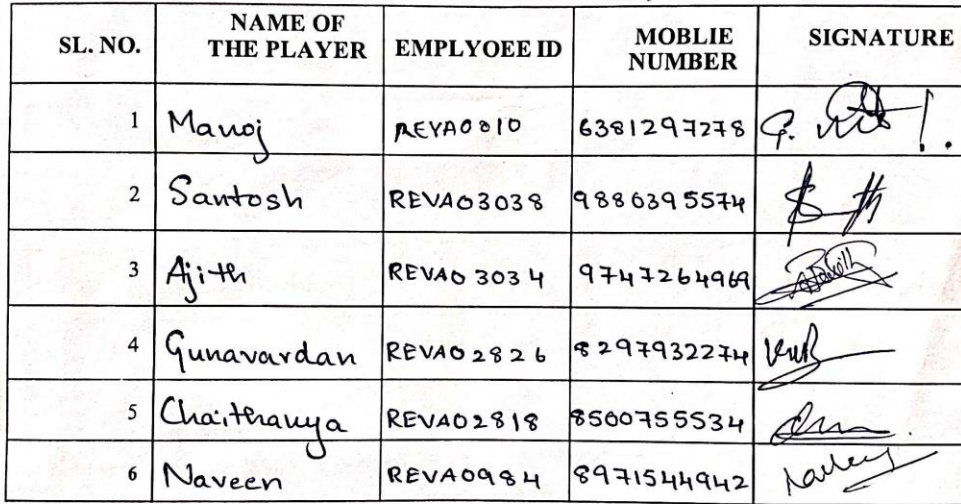 SL. NO. NAME OF THE PLAYER EMPLYOEE ID MOBLIE NUMBER SIGNATURE
1 Manoj REVA0810 6381297278
2 Santosh REVA03038 9880395574
3 Ajith REVA03034 9747264969
4 Gunavardan REVA02826 8297932274
5 Chaithanya REVA02818 8500755534
6 Naveen REVA0984 8971544942